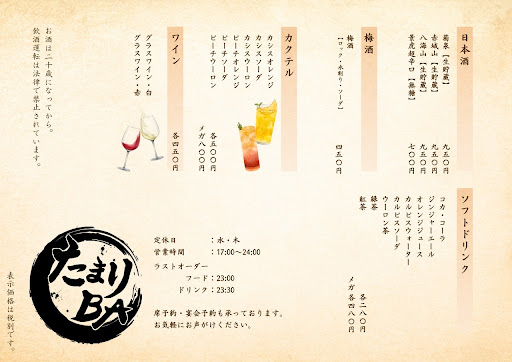 日本酒
菊泉【生貯蔵】 九五〇円
赤城山【生貯蔵】 九五〇円
八海山【生貯蔵】 九五〇円
景虎超辛口【無糖】 七〇〇円
梅酒
梅酒 四五〇円
【ロック・水割り・ソーダ】
カクテル
カシスオレンジ
カシスソーダ
カシスウーロン
ピーチオレンジ
ピーチソーダ
ピーチウーロン
各五〇〇円
メガ八〇〇円
ワイン
グラスワイン・白
グラスワイン・赤
各四五〇円
お酒は二十歳になってから。
飲酒運転は法律で禁止されています。
ソフトドリンク
コカ・コーラ
ジンジャーエール
オレンジジュース
カルピスウォーター
カルピスソーダ
ウーロン茶
緑茶
紅茶
各二八〇円
メガ各四八〇円
定休日 :水・木
営業時間 :17:00~24:00
ラストオーダー
フード:23:00
ドリンク:23:30
席予約・宴会予約も承っております。
お気軽にお声がけください。
たまり
BA
表示価格は税別です。